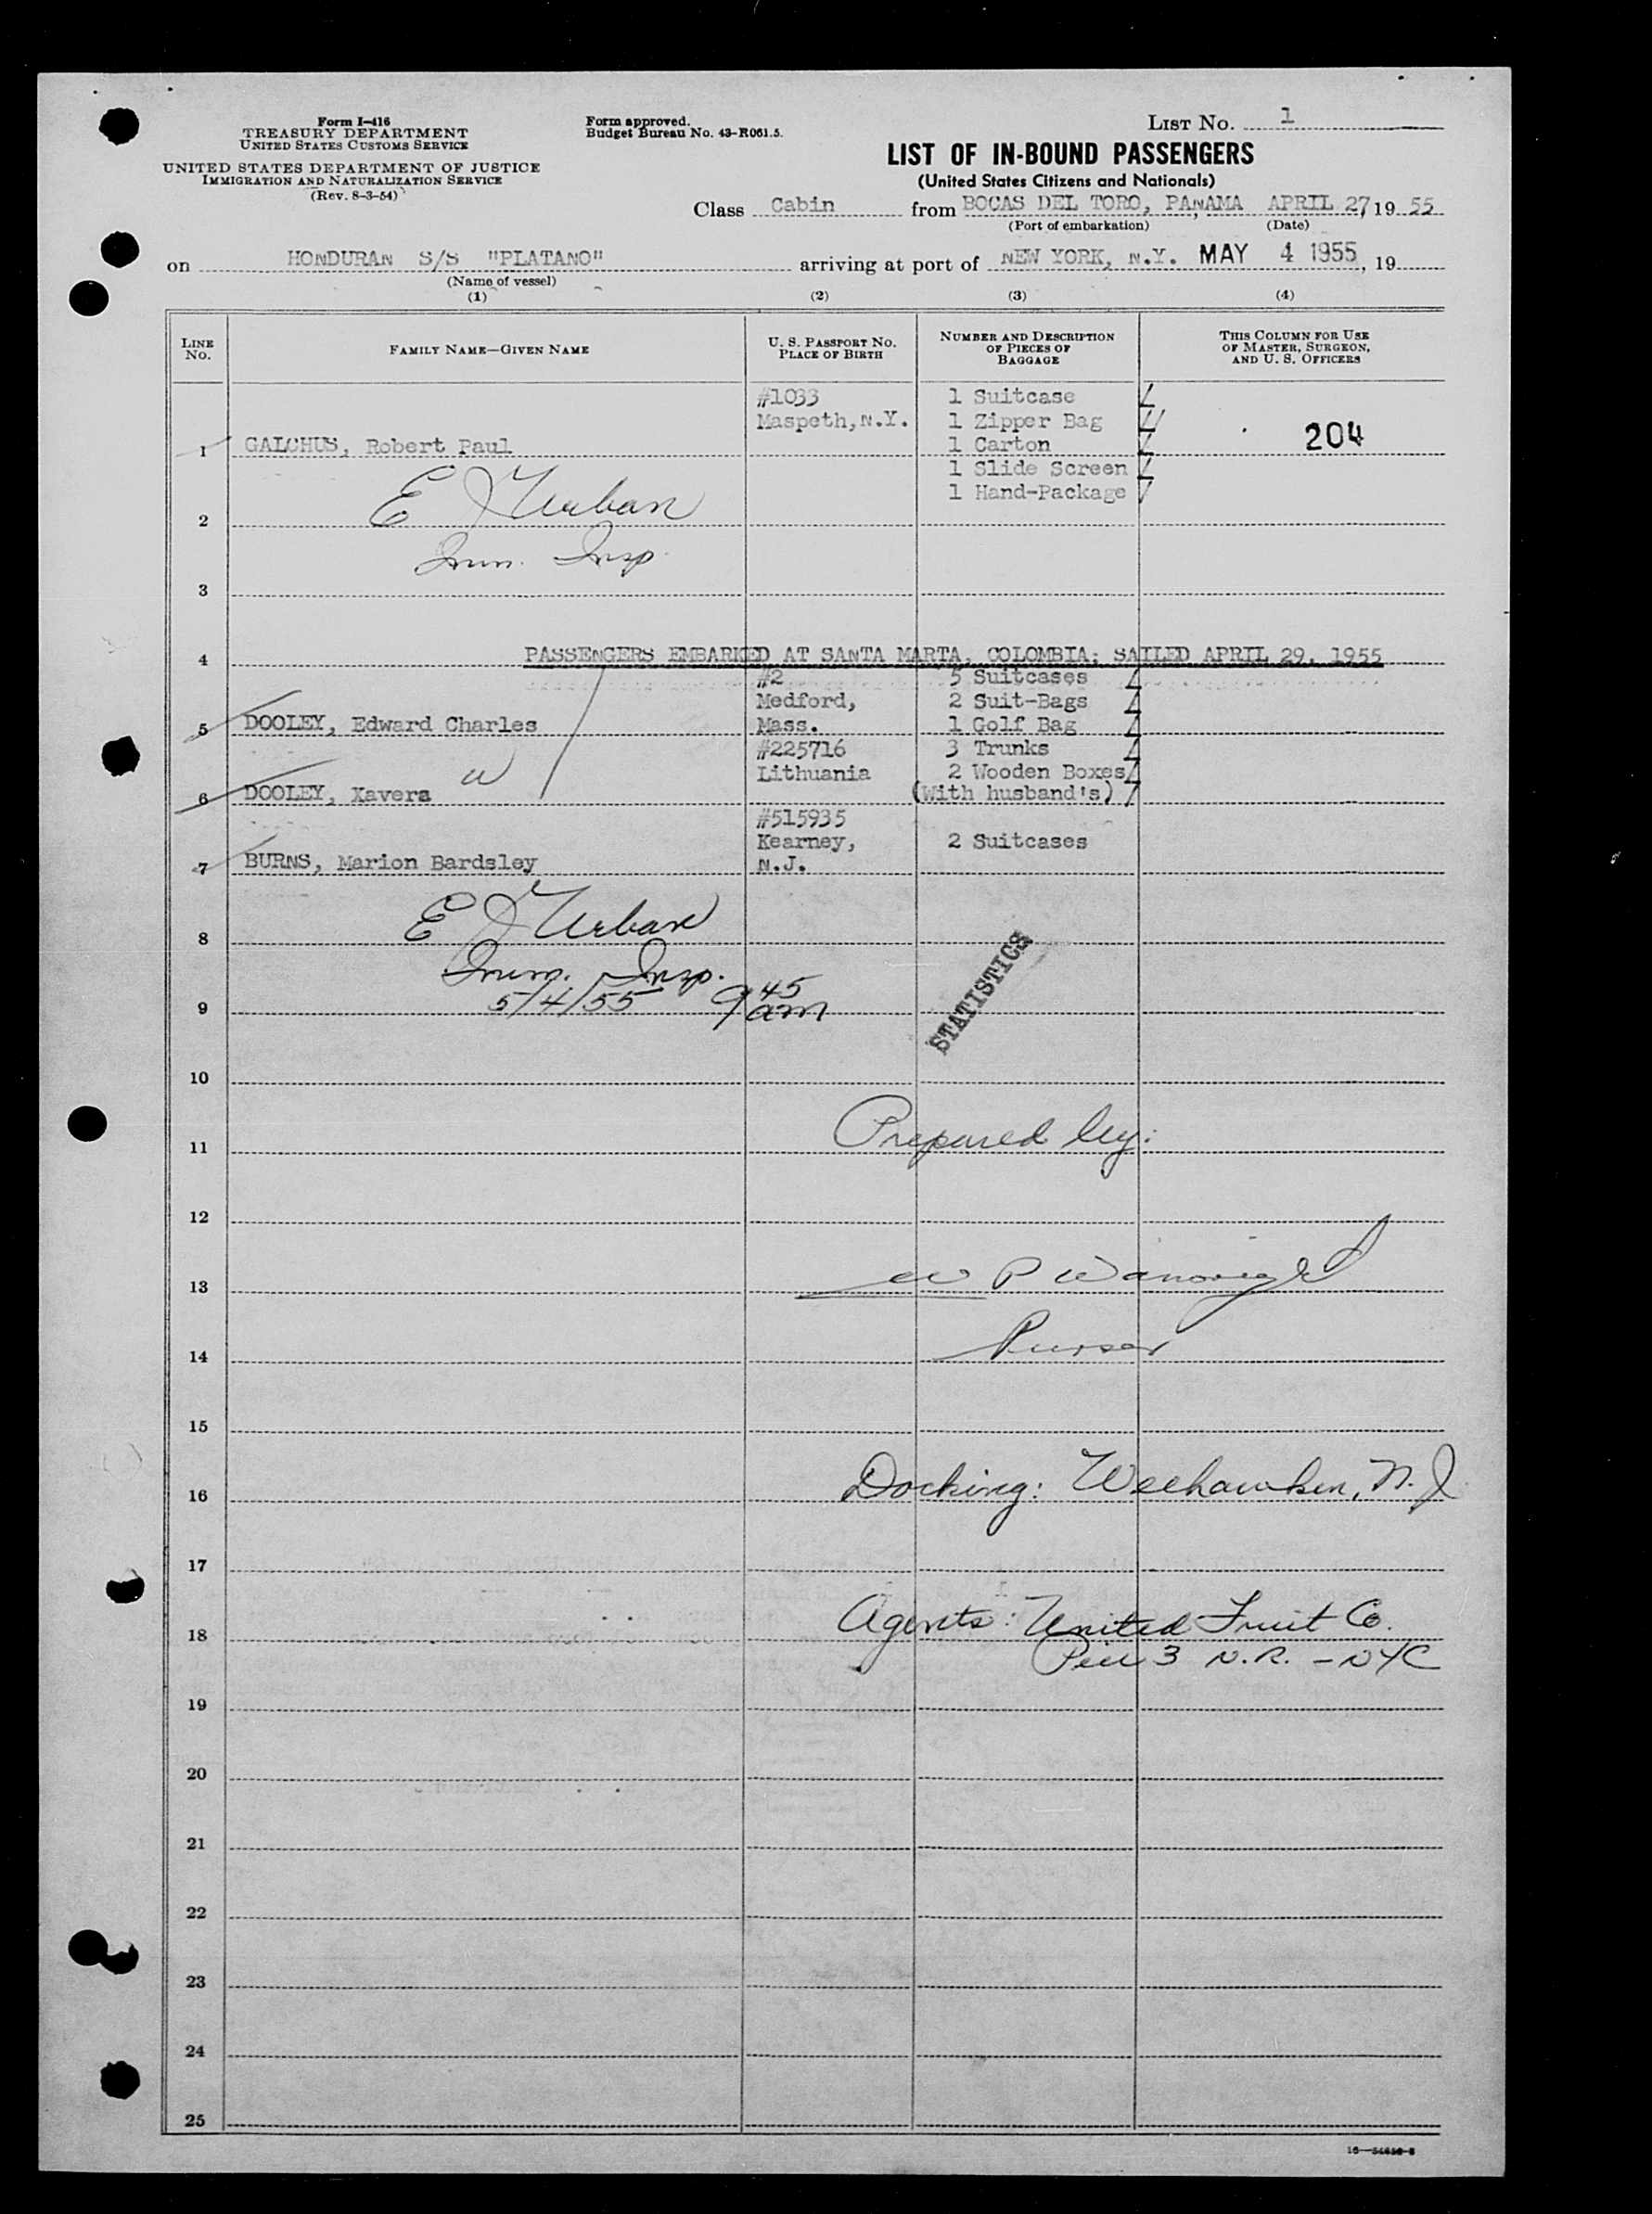 Form I-416
TREASURY DEPARTMENT
UNITED STATES CUSTOMS SERVICE
UNITED STATES DEPARTMENT OF JUSTICE
IMMIGRATION AND NATURALIZATION SERVICE
(Rev. 8-3-54)
Form approved.
Budget Bureau No. 43-R061.5.
LIST No. 1
LIST OF IN-BOUND PASSENGERS
(United States Citizens and Nationals)
Class Cabin from BOCAS DEL TORO, PANAMA APRIL 27, 19 55
(Port of embarkation) (Date)
on HONDURAN S/S "PLATANO" arriving at port of NEW YORK, N.Y. MAY 4 1955, 19
(Name of vessel)
(1) (2) (3) (4)
LINE No. FAMILY NAME—GIVEN NAME U. S. PASSPORT No. PLACE OF BIRTH NUMBER AND DESCRIPTION OF PIECES OF BAGGAGE THIS COLUMN FOR USE OF MASTER, SURGEON, AND U. S. OFFICERS
#1033 1 Suitcase
Maspeth, N.Y. 1 Zipper Bag
1 GALCHUS, Robert Paul 1 Carton 204
1 Slide Screen
1 Hand-Package
2 E J Urban
Imm. Insp.
3
4 PASSENGERS EMBARKED AT SANTA MARTA, COLOMBIA; SAILED APRIL 29, 1955
#2 5 Suitcases
Medford, 2 Suit-Bags
5 DOOLEY, Edward Charles Mass. 1 Golf Bag
#225716 3 Trunks
W Lithuania 2 Wooden Boxes
6 DOOLEY, Xavera (With husband's)
#515935
Kearney, 2 Suitcases
7 BURNS, Marion Bardsley N.J.
8 E J Urban
Imm. Insp.
9 5/4/55 9 45 am
STATISTICS
10
11 Prepared by:
12
13 W P
14 Purser
15
16 Docking: Weehawken, N.J
17
18 Agents: United Fruit Co.
Pier 3 N.R. - NYC
19
20
21
22
23
24
25